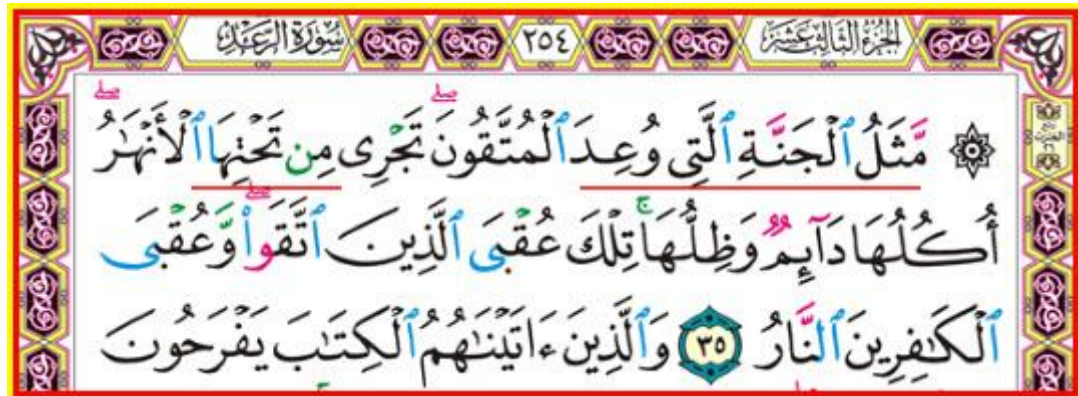 الجزء الثالث عشر ٢٥٤ سورة الرعد
۞ مَّثَلُ ٱلْجَنَّةِ ٱلَّتِى وُعِدَ ٱلْمُتَّقُونَ ۖ تَجْرِى مِن تَحْتِهَا ٱلْأَنْهَٰرُ ۖ
أُكُلُهَا دَآئِمٌ وَظِلُّهَا ۚ تِلْكَ عُقْبَى ٱلَّذِينَ ٱتَّقَوا۟ ۖ وَّعُقْبَى
ٱلْكَٰفِرِينَ ٱلنَّارُ ٣٥ وَٱلَّذِينَ ءَاتَيْنَٰهُمُ ٱلْكِتَٰبَ يَفْرَحُونَ